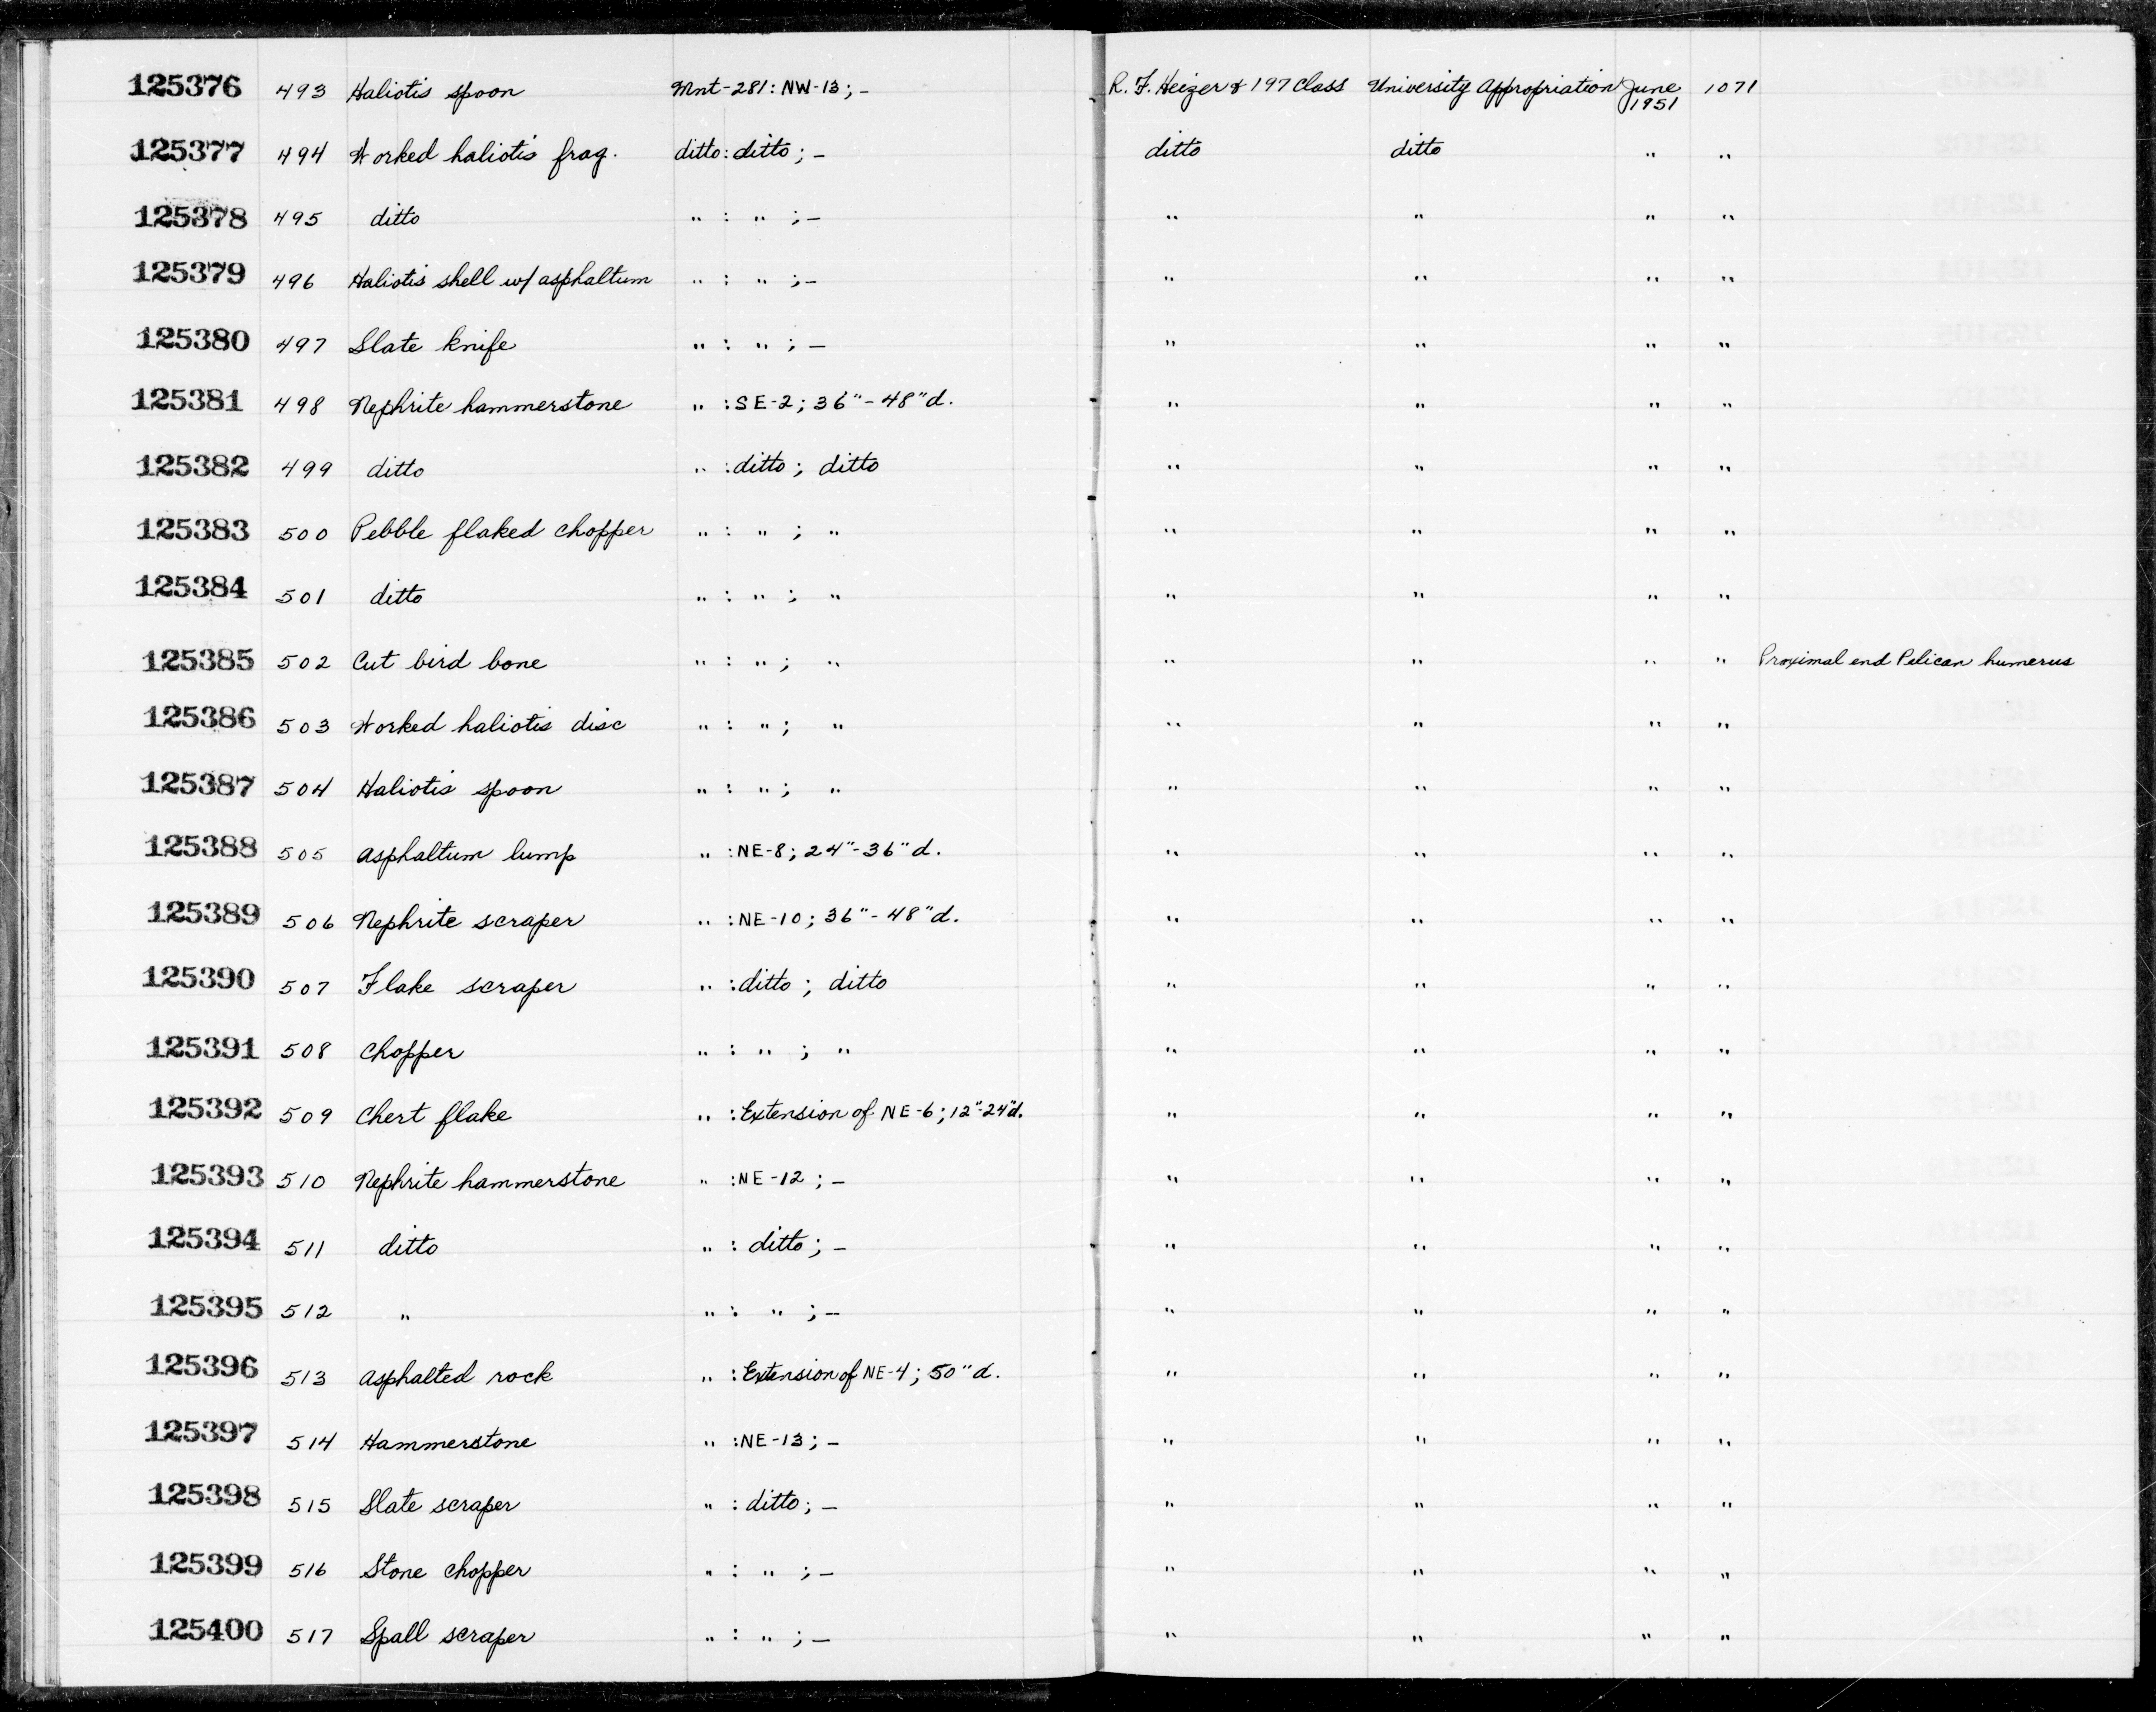 125376 493 Haliotis spoon Mnt-281: NW-13; – R. F. Heizer & 197 Class University Appropriation June 1951 1071
125377 494 Worked haliotis frag. ditto: ditto; – ditto ditto " "
125378 495 ditto " : " ; – " " " "
125379 496 Haliotis shell w/ asphaltum " : " ; – " " " "
125380 497 Slate knife " : " ; – " " " "
125381 498 Nephrite hammerstone " : SE-2; 36"-48"d. " " " "
125382 499 ditto " : ditto; ditto " " " "
125383 500 Pebble flaked chopper " : " ; " " " " "
125384 501 ditto " : " ; " " " " "
125385 502 Cut bird bone " : " ; " " " " " Proximal end Pelican humerus
125386 503 Worked haliotis disc " : " ; " " " " "
125387 504 Haliotis spoon " : " ; " " " " "
125388 505 Asphaltum lump " : NE-8; 24"-36"d. " " " "
125389 506 Nephrite scraper " : NE-10; 36"-48"d. " " " "
125390 507 Flake scraper " : ditto; ditto " " " "
125391 508 Chopper " : " ; " " " " "
125392 509 Chert flake " : Extension of NE-6; 12"-24"d. " " " "
125393 510 Nephrite hammerstone " : NE-12; – " " " "
125394 511 ditto " : ditto; – " " " "
125395 512 " " : " ; – " " " "
125396 513 Asphalted rock " : Extension of NE-4; 50"d. " " " "
125397 514 Hammerstone " : NE-13; – " " " "
125398 515 Slate scraper " : ditto; – " " " "
125399 516 Stone chopper " : " ; – " " " "
125400 517 Spall scraper " : " ; – " " " "